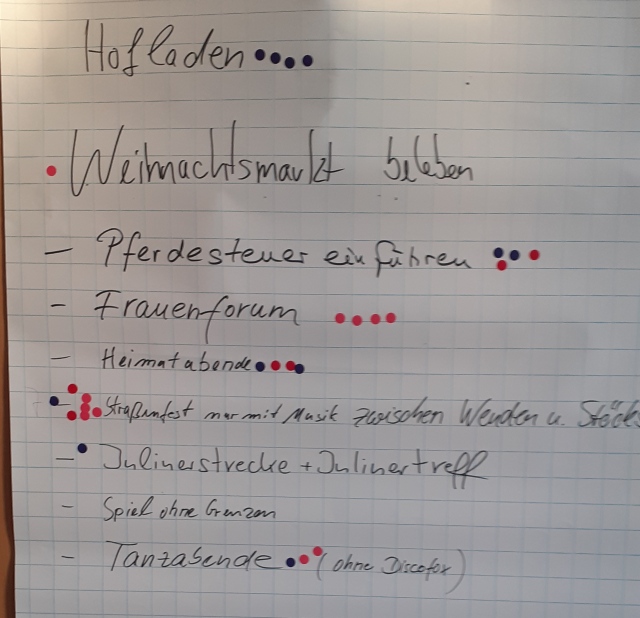 Hofladen
Weihnachtsmarkt beleben
- Pferdesteuer einführen
- Frauenforum
- Heimatabende
- Straßenfest nur mit Musik zwischen Wenden u. Stöck
- Inlinerstrecke + Inlinertreff
- Spiel ohne Grenzen
- Tanzabende (ohne Discofox)